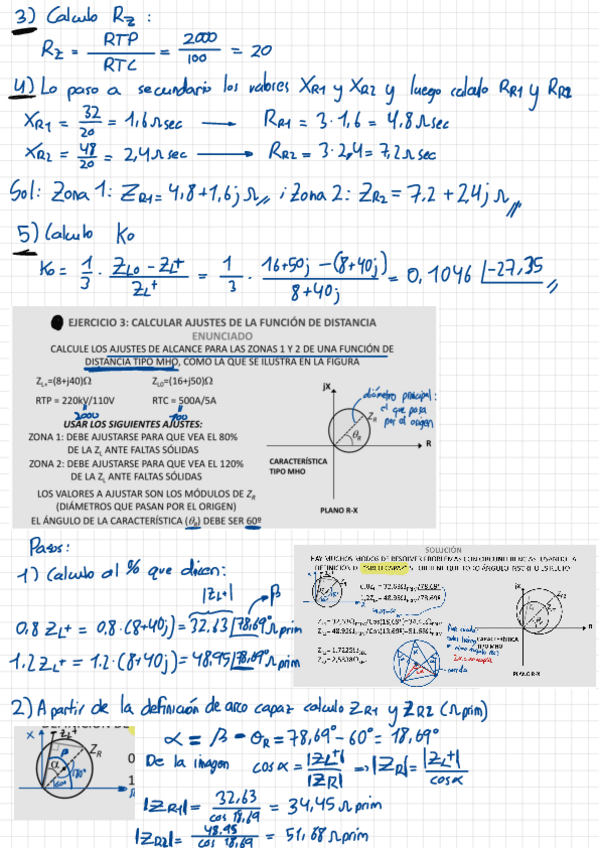 3) Calculo Rz :
Rz = RTP / RTC = 2000 / 100 = 20
4) Lo paso a secundario los valores XR1 y XR2 y luego calculo RR1 y RR2
XR1 = 32/20 = 1,6 Ω sec → RR1 = 3·1,6 = 4,8 Ω sec
XR2 = 48/20 = 2,4 Ω sec → RR2 = 3·2,4 = 7,2 Ω sec
Sol: Zona 1: ZR1 = 4,8+1,6j Ω // ; Zona 2: ZR2 = 7.2 + 2,4j Ω //
5) Calculo K0
K0 = 1/3 · (ZL0 - ZL+) / ZL+ = 1/3 · (16+50j - (8+40j)) / (8+40j) = 0,1046 |-27,35 //
EJERCICIO 3: CALCULAR AJUSTES DE LA FUNCIÓN DE DISTANCIA
ENUNCIADO
CALCULE LOS AJUSTES DE ALCANCE PARA LAS ZONAS 1 Y 2 DE UNA FUNCIÓN DE
DISTANCIA TIPO MHO, COMO LA QUE SE ILUSTRA EN LA FIGURA
ZL+=(8+j40)Ω ZL0=(16+j50)Ω
RTP = 220kV/110V RTC = 500A/5A
2000 100
USAR LOS SIGUIENTES AJUSTES:
ZONA 1: DEBE AJUSTARSE PARA QUE VEA EL 80%
DE LA ZL ANTE FALTAS SÓLIDAS
ZONA 2: DEBE AJUSTARSE PARA QUE VEA EL 120%
DE LA ZL ANTE FALTAS SÓLIDAS
LOS VALORES A AJUSTAR SON LOS MÓDULOS DE ZR
(DIÁMETROS QUE PASAN POR EL ORIGEN)
EL ÁNGULO DE LA CARACTERÍSTICA (θR) DEBE SER 60º
jX
diámetro principal:
el que pasa
por el origen
ZR
θR
R
CARACTERÍSTICA
TIPO MHO
PLANO R-X
Pasos:
1) Calculo el % que dicen:
|ZL+| β
0.8 ZL+ = 0.8·(8+40j) = 32.63 |78,69° Ω prim
1.2 ZL+ = 1.2·(8+40j) = 48.95 |78,69° Ω prim
SOLUCIÓN
jX
CARACTERÍSTICA
TIPO MHO
PLANO R-X
cuerda
2) A partir de la definición de arco capaz calculo ZR1 y ZR2 (Ω prim)
X ZL+
ZR
β
α
α = β - θR = 78,69° - 60° = 18,69°
De la imagen cos α = |ZL+| / |ZR| ⇒ |ZR| = |ZL+| / cos α
|ZR1| = 32.63 / cos 18,69 = 34,45 Ω prim
|ZR2| = 48.95 / cos 18,69 = 51,68 Ω prim